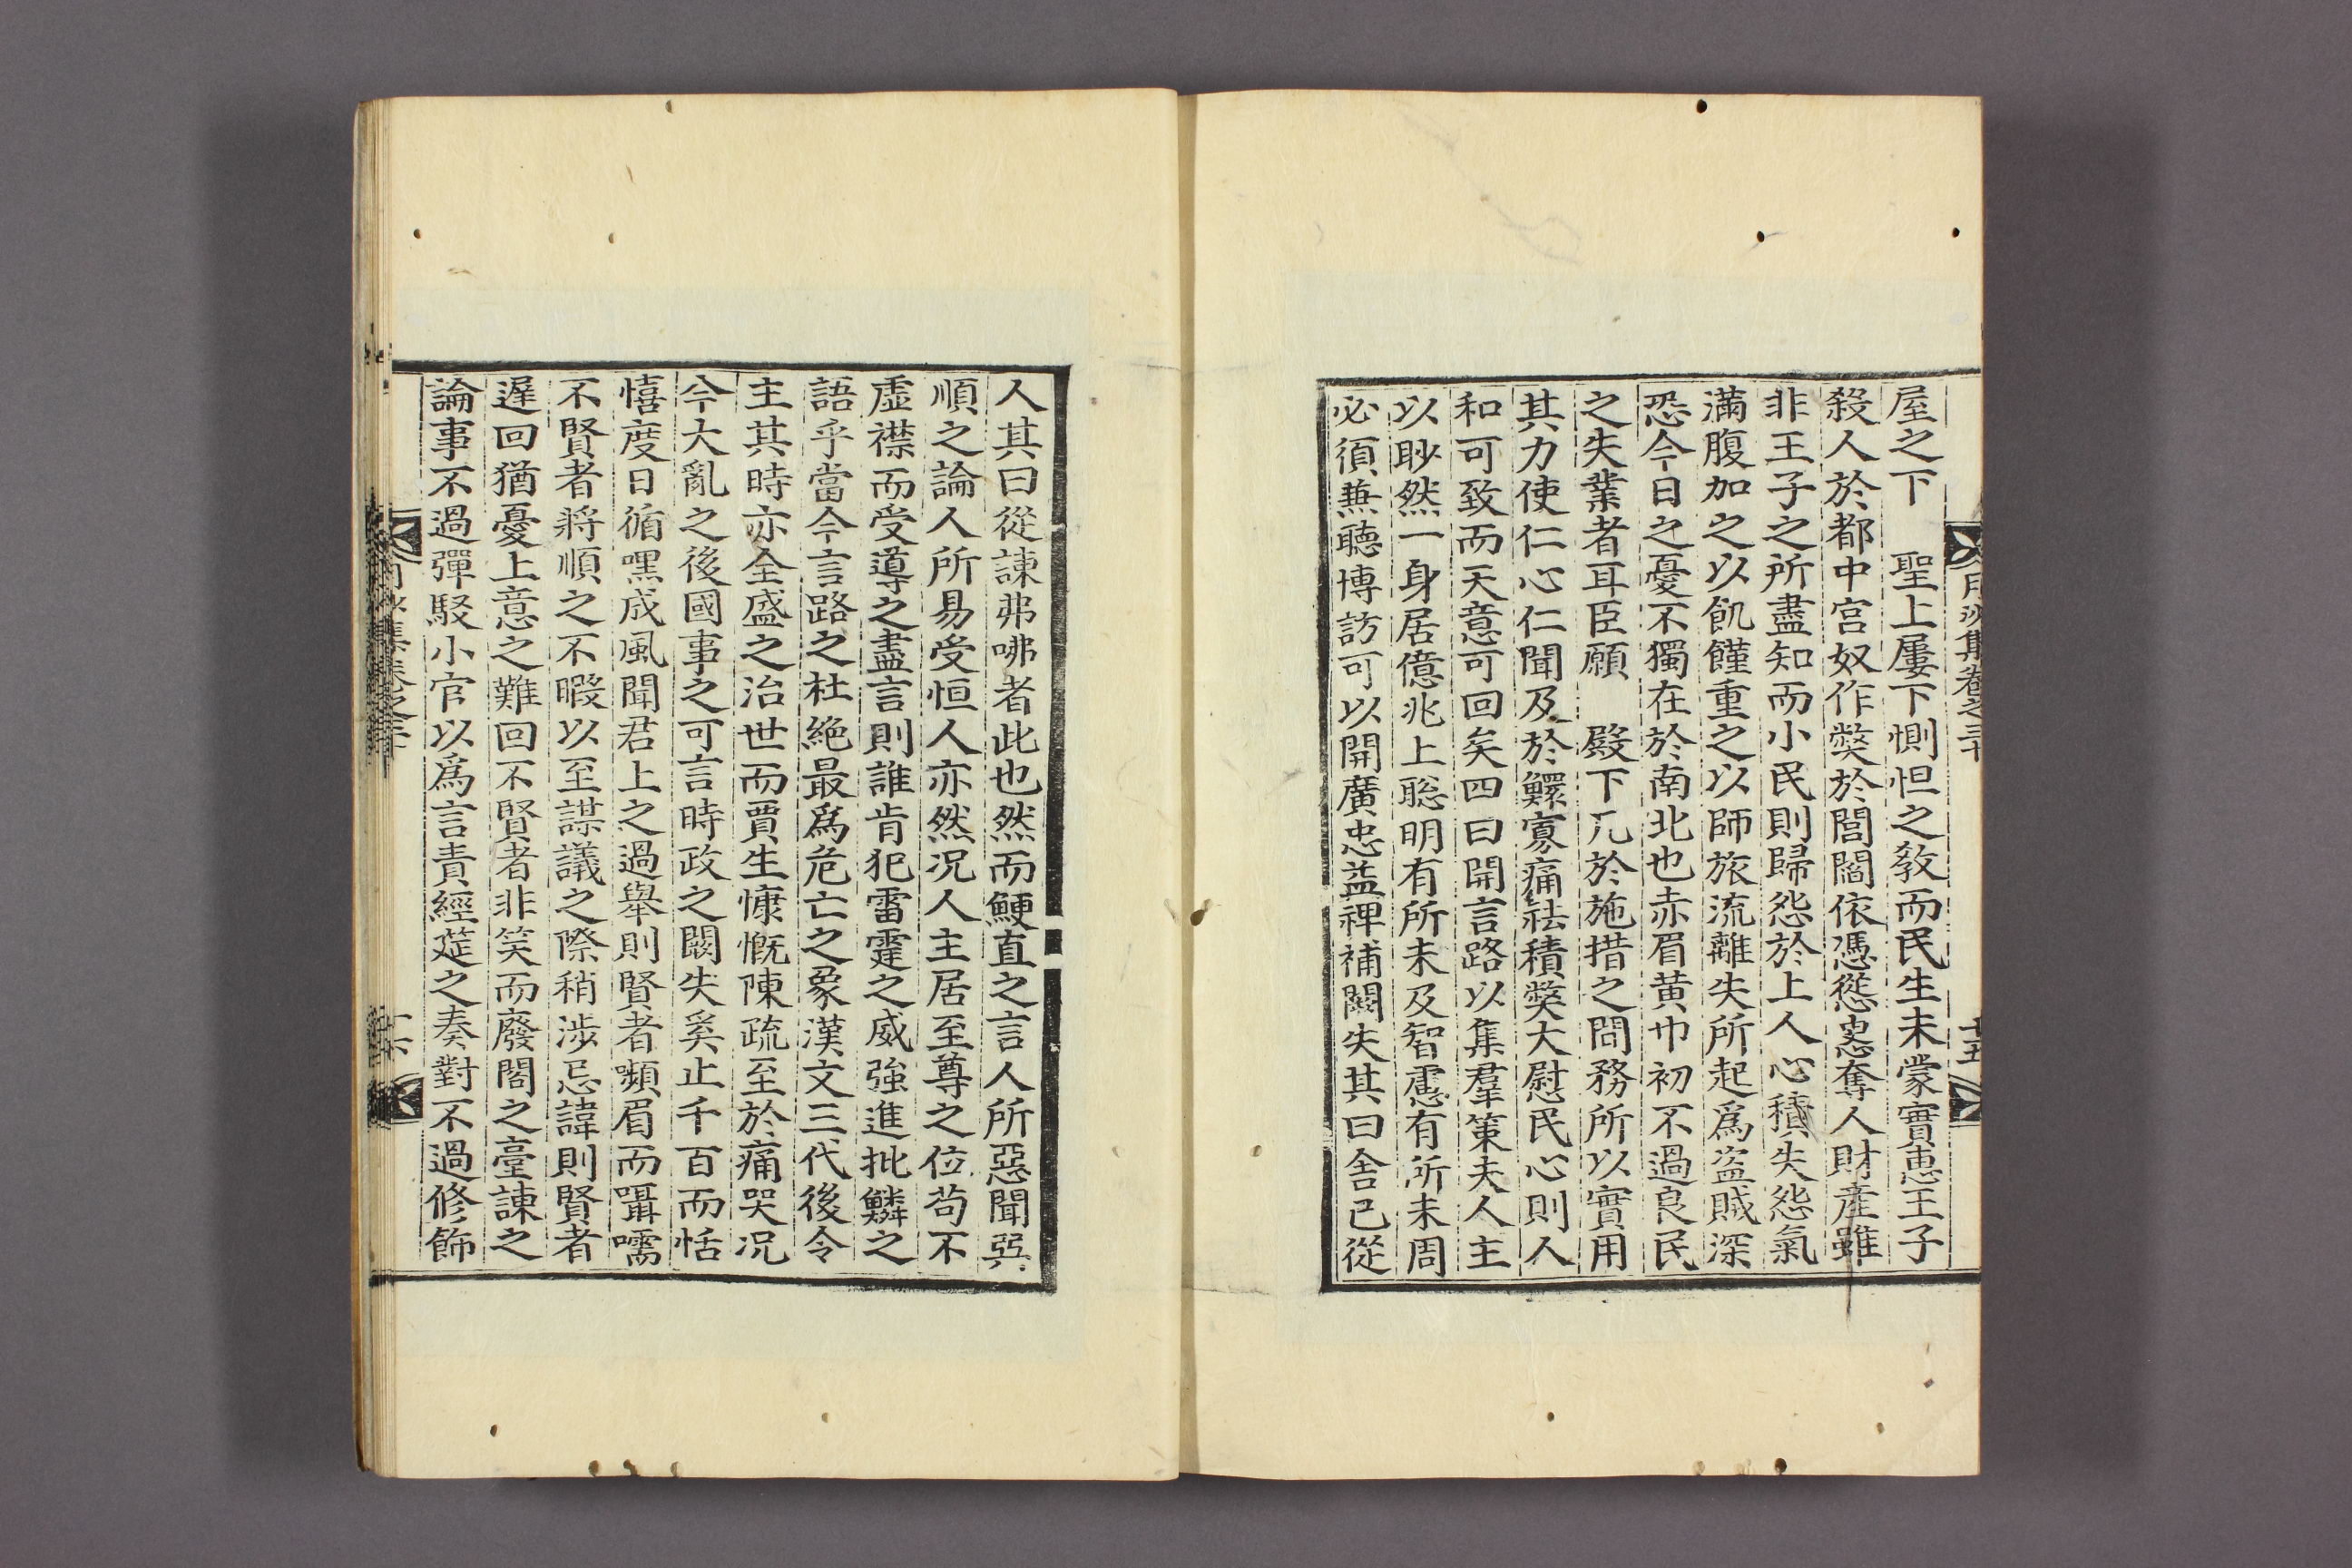 月沙集卷之三十
十五
屋之下 聖上屢下惻怛之教而民生未蒙實惠王子
殺人於都中宮奴作獘於閭閻依憑慫恿奪人財産雖
非王子之所盡知而小民則歸怨於上人心積失怨氣
滿腹加之以飢饉重之以師旅流離失所起爲盗賊深
恐今日之憂不獨在於南北也赤眉黄巾初不過良民
之失業者耳臣願 殿下凡於施措之間務所以實用
其力使仁心仁聞及於鰥寡痛祛積獘大慰民心則人
和可致而天意可回矣四曰開言路以集羣策夫人主
以眇然一身居億兆上聡明有所未及智慮有所未周
必須兼聽博訪可以開廣忠益裨補闕失其曰舍己從
人其曰從諫弗咈者此也然而鯁直之言人所惡聞巽
順之論人所易受恒人亦然况人主居至尊之位苟不
虛襟而受導之盡言則誰肯犯雷霆之威強進批鱗之
語乎當今言路之杜絶最爲危亡之象漢文三代後令
主其時亦全盛之治世而賈生慷慨陳疏至於痛哭况
今大亂之後國事之可言時政之闕失奚止千百而恬
憘度日循嘿成風聞君上之過舉則賢者嚬眉而囁嚅
不賢者將順之不暇以至謀議之際稍涉忌諱則賢者
遅回猶憂上意之難回不賢者非笑而廢閣之臺諫之
論事不過彈駁小官以爲言責經筵之奏對不過修飾
十六